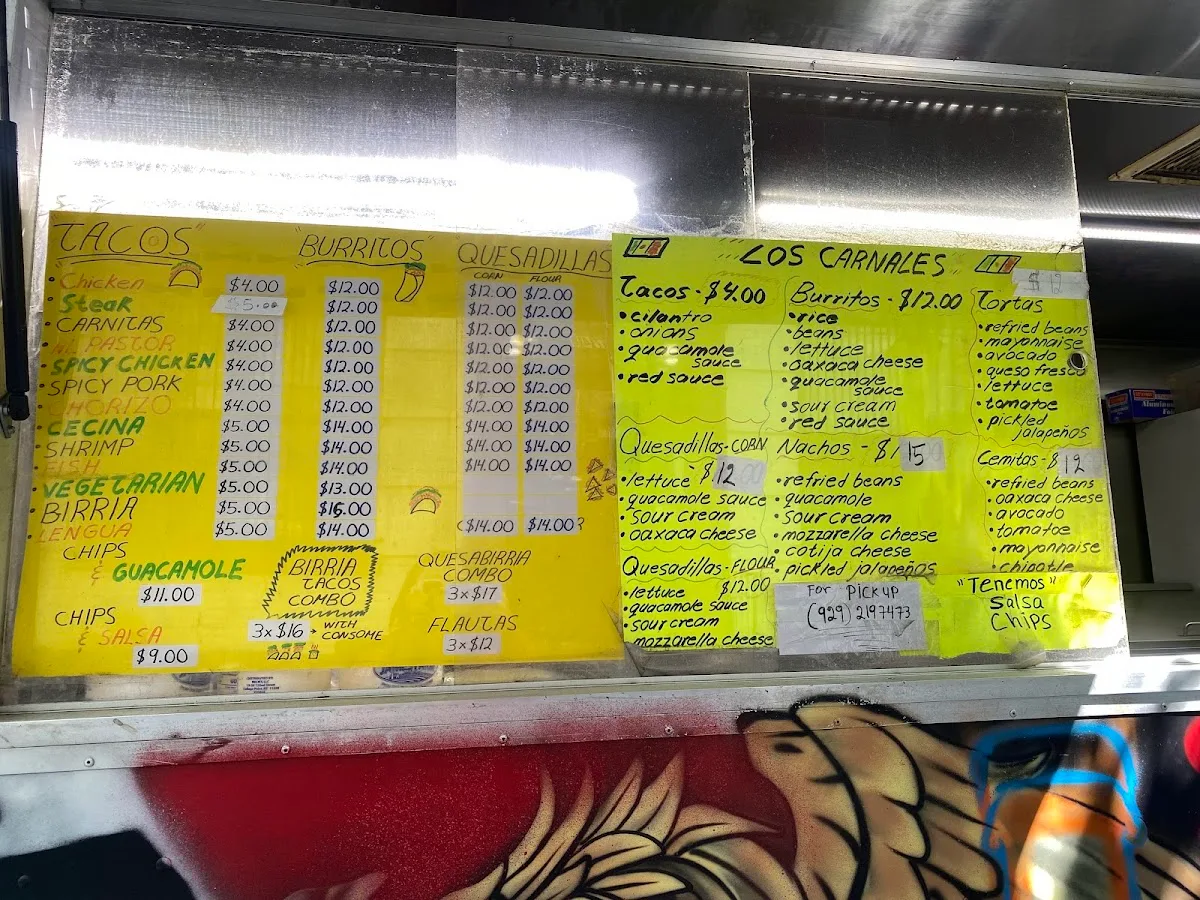 "TACOS"
Chicken $4.00
Steak $5.00
CARNITAS $4.00
AL PASTOR $4.00
SPICY CHICKEN $4.00
SPICY PORK $4.00
CHORIZO $4.00
CECINA $5.00
SHRIMP $5.00
FISH $5.00
VEGETARIAN $5.00
BIRRIA $5.00
LENGUA $5.00
CHIPS
&
GUACAMOLE
$11.00
CHIPS
& SALSA
$9.00
"BURRITOS"
$12.00
$12.00
$12.00
$12.00
$12.00
$12.00
$12.00
$14.00
$14.00
$14.00
$13.00
$16.00
$14.00
BIRRIA
TACOS
COMBO
3x$16 → WITH
CONSOME
QUESADILLAS
CORN FLOUR
$12.00 $12.00
$12.00 $12.00
$12.00 $12.00
$12.00 $12.00
$12.00 $12.00
$12.00 $12.00
$12.00 $12.00
$14.00 $14.00
$14.00 $14.00
$14.00 $14.00
$14.00 $14.00
QUESABIRRIA
COMBO
3x$17
FLAUTAS
3x$12
LOS CARNALES
Tacos - $4.00
• cilantro
• onions
• guacamole
sauce
• red sauce
Quesadillas-CORN
• lettuce - $12
• guacamole sauce
• sour cream
• oaxaca cheese
Quesadillas-FLOUR
• lettuce $12.00
• guacamole sauce
• sour cream
• mozzarella cheese
Burritos - $12.00
• rice
• beans
• lettuce
• oaxaca cheese
• guacamole
sauce
• sour cream
• red sauce
Nachos - $15
• refried beans
• guacamole
• sour cream
• mozzarella cheese
• cotija cheese
• pickled jalapeños
FOR PICK UP
(929) 2197473
$12
Tortas
• refried beans
• mayonnaise
• avocado
• queso fresco
• lettuce
• tomatoe
• pickled
jalapeños
Cemitas - $12
• refried beans
• oaxaca cheese
• avocado
• tomatoe
• mayonnaise
• chipotle
"Tenemos"
Salsa
Chips